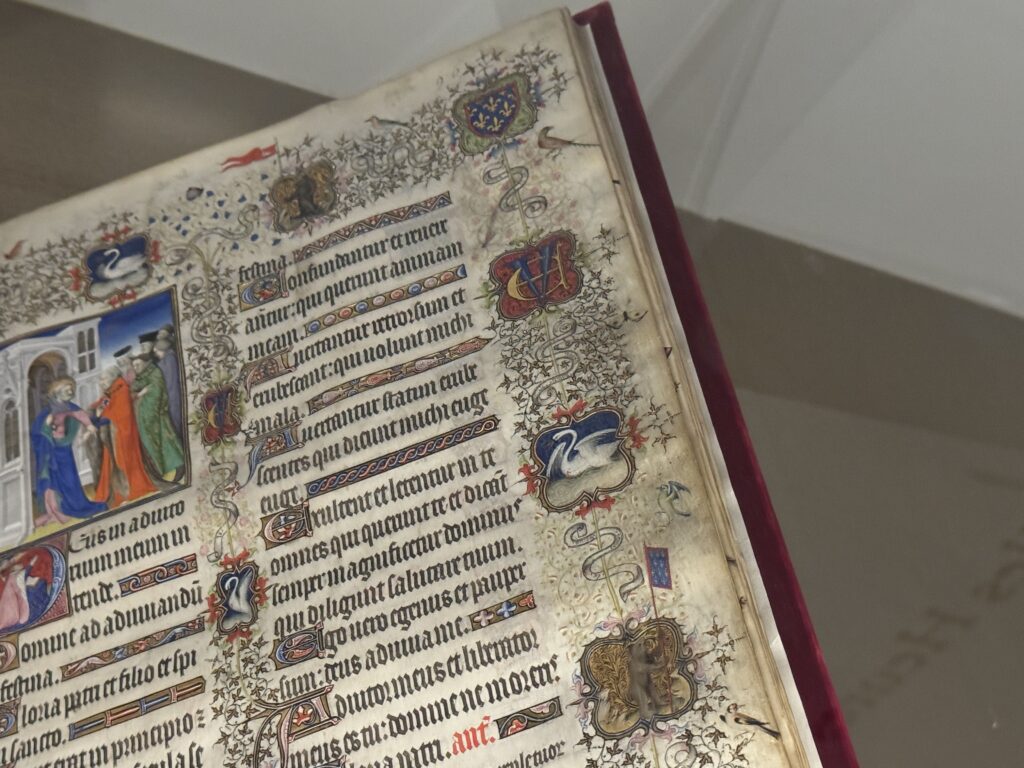 Deus in adiuto
rium meum in
tende.
Domine ad adiuuandū
festina.
Gloria patri et filio et spi
sancto.
erat in principio ⁊
festina.
Confundantur et reuere
antur: qui querunt animam
meam.
Auertantur retrorsum et
erubescant: qui uolunt michi
mala.
Auertantur statim erube
scentes qui dicunt michi euge
euge.
Exultent et letentur in te
omnes qui querunt te et dicāt
semper magnificetur dominus
qui diligunt salutare tuum.
Ego uero egenus et pauper
sum: deus adiuua me.
Adiutor meus et liberator
meus es tu: domine ne moreris
patri. ant.